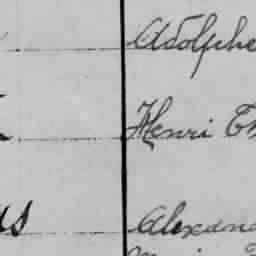 Adolphe
Henri Th
us
Alexand